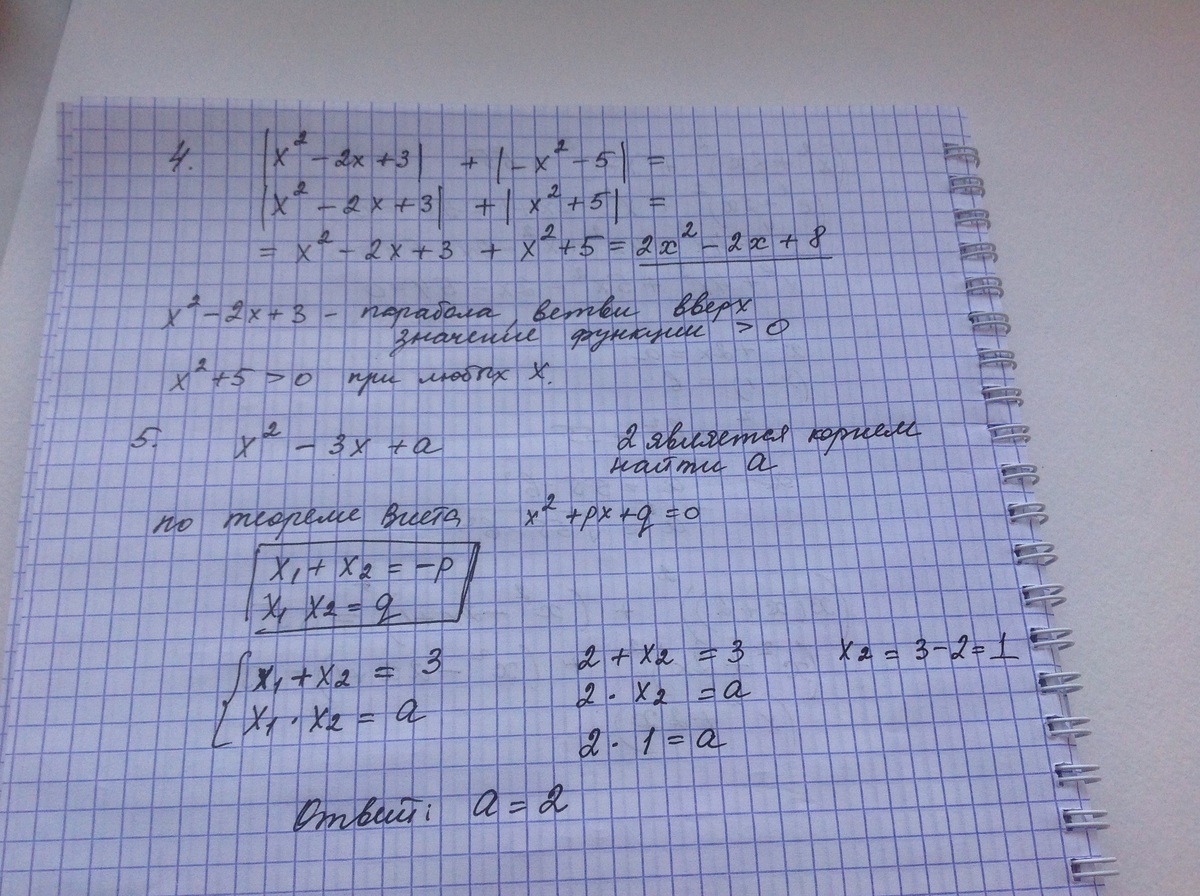 4. |x² - 2x + 3| + |-x² - 5| =
|x² - 2x + 3| + |x² + 5| =
= x² - 2x + 3 + x² + 5 = 2x² - 2x + 8
x² - 2x + 3 - парабола, ветви вверх
значение функции > 0
x² + 5 > 0 при любых x.
5. x² - 3x + a 2 является корнем
найти a
по теореме Виета x² + px + q = 0
x₁ + x₂ = -p
x₁ x₂ = q
x₁ + x₂ = 3 2 + x₂ = 3 x₂ = 3 - 2 = 1
x₁ · x₂ = a 2 · x₂ = a
2 · 1 = a
Ответ: a = 2